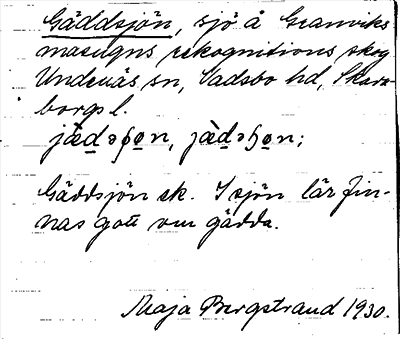 Gäddsjön, sjö å Granviks
masugns rekognitions skog
Undenäs sn, Vadsbo hd, Skara-
borgs l.
jæ̀dɘʃo̲n, jàd̲ɘɧo̲n;
Gäddsjön ek. I sjön lär fin-
nas gott om gädda.
Maja Bergstrand 1930.